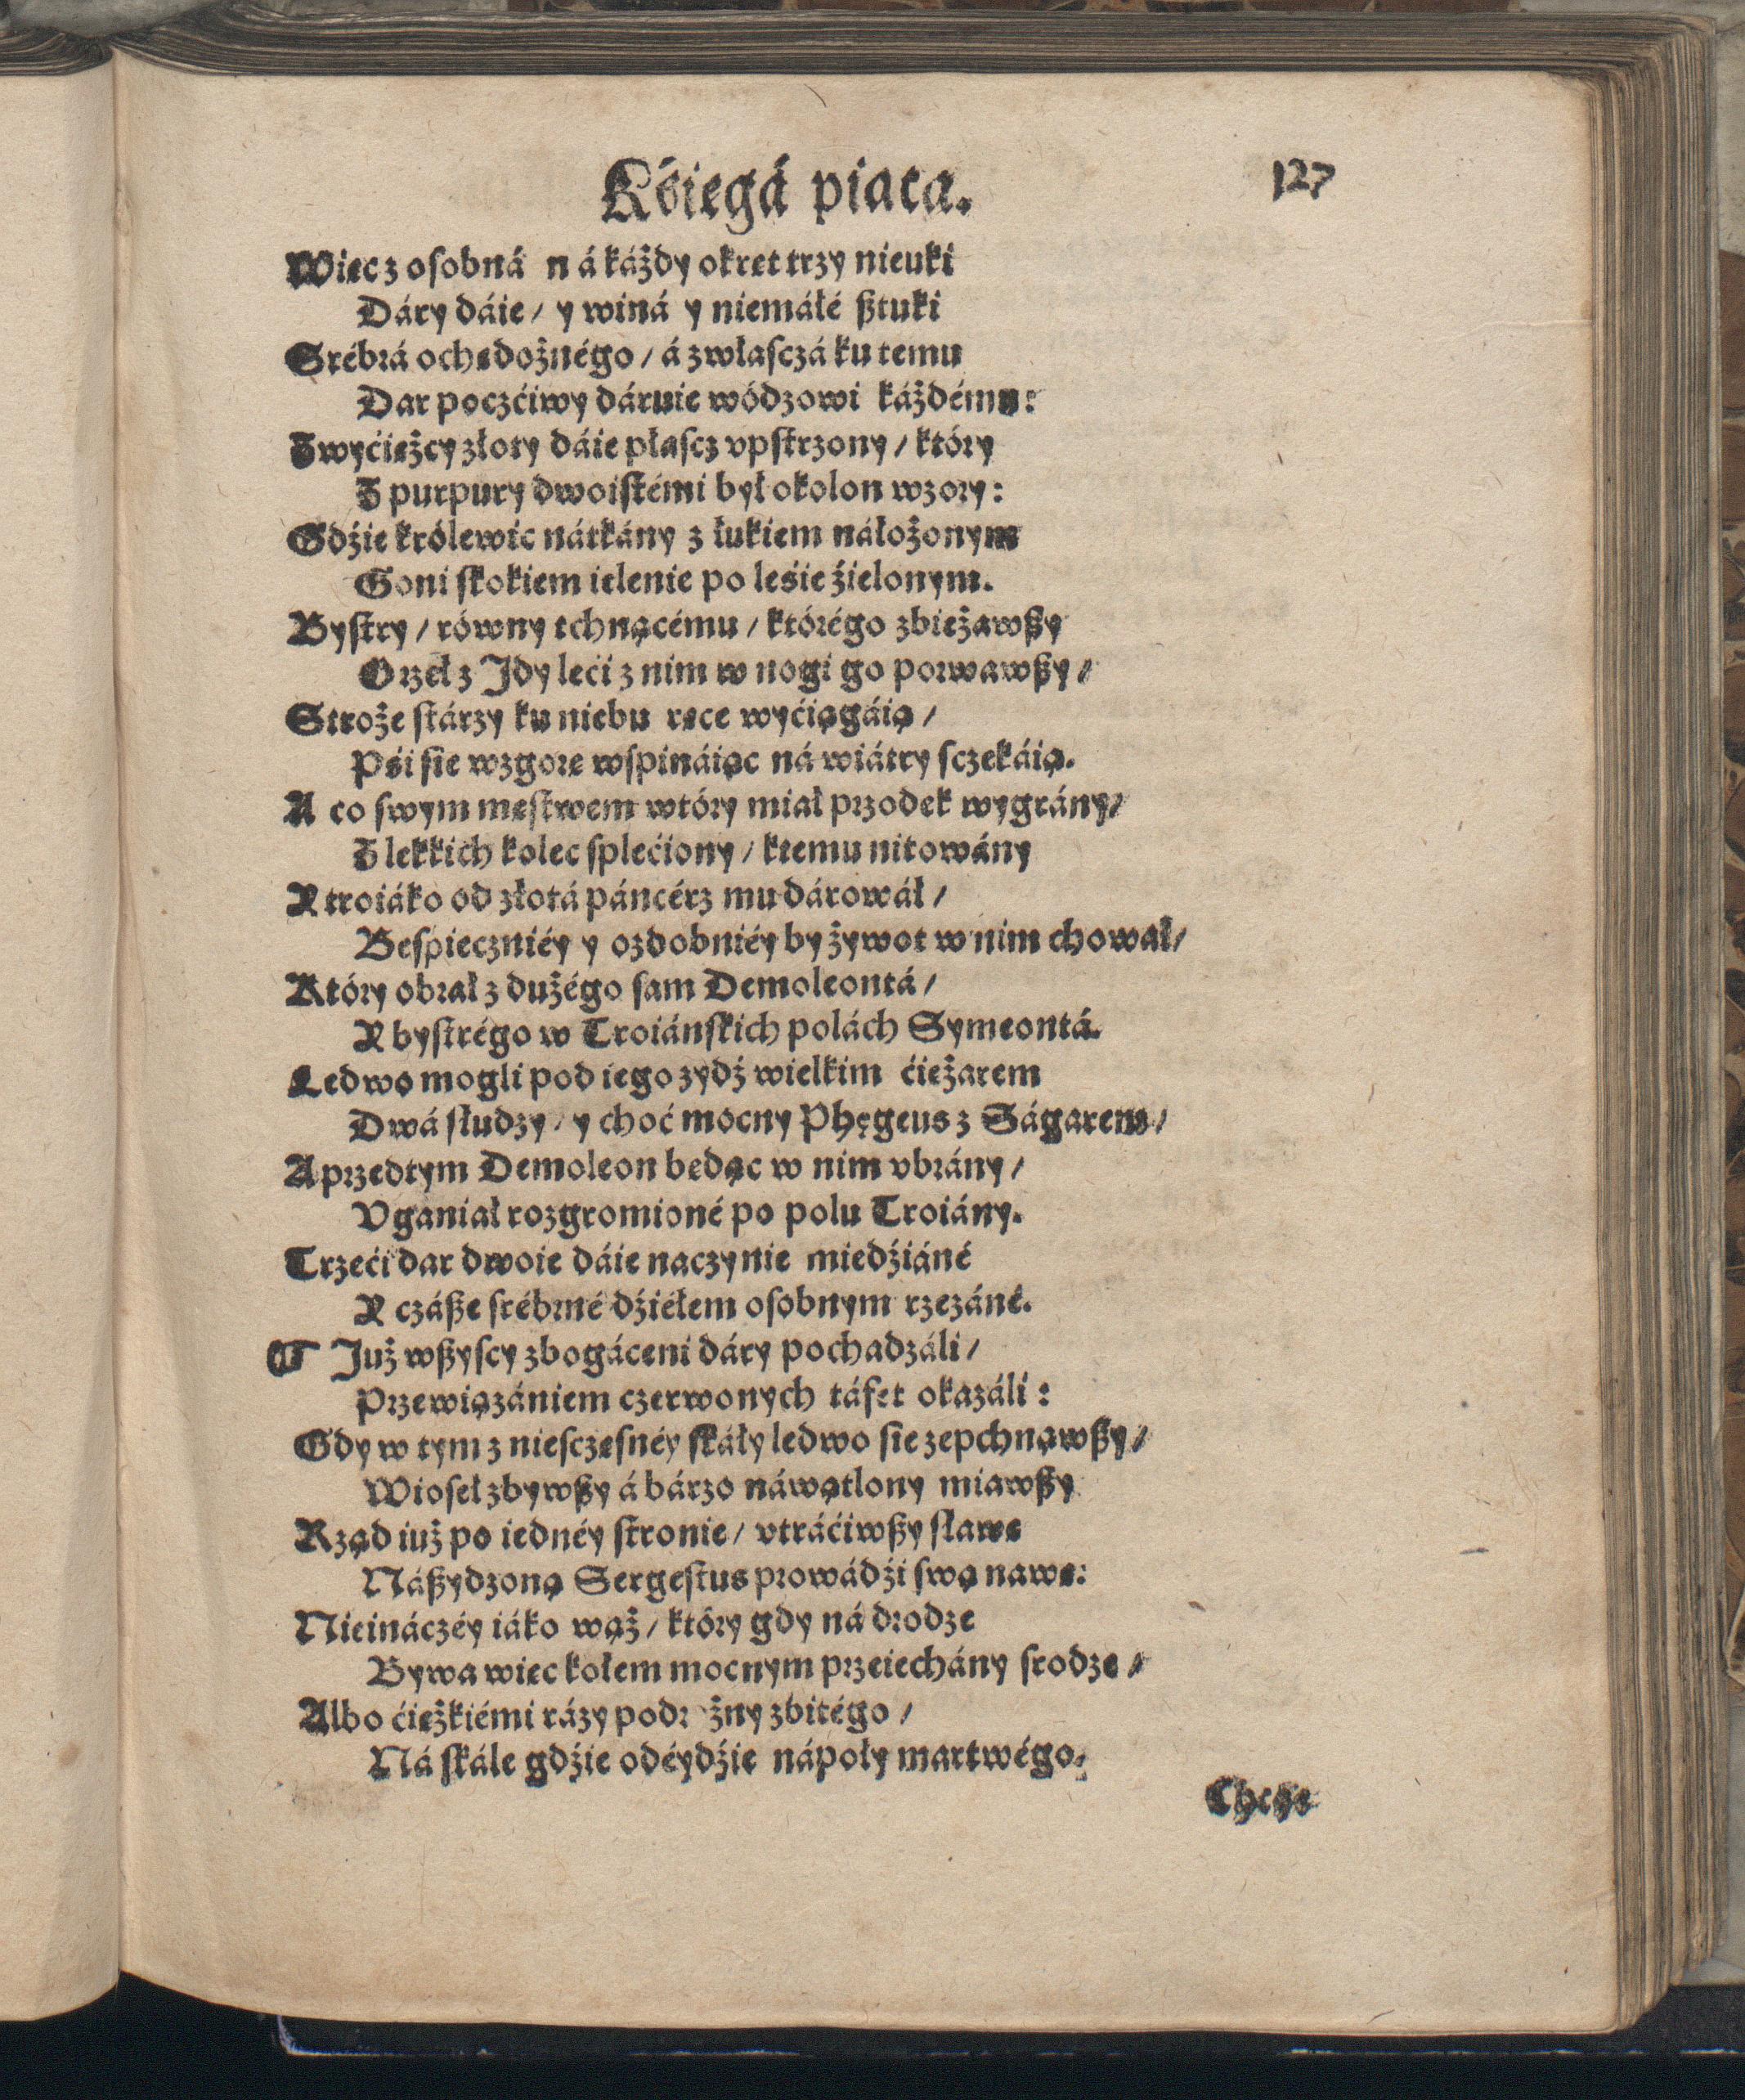 Kśięgá piąta.
127
Więc z osobná ná káżdy okręt trzy nieuki
Dáry dáie / y winá y niemáłé ßtuki
Srébrá ochędożnégo / á zwłaſczá ku temu
Dar poczćiwy dáruie wódzowi káżdému:
Zwyćiężcy złoty dáie płaſcz vpſtrzony / który
Z purpury dwoiſtémi był okolon wzory:
Gdźie królewic nátkány z łukiem náłożonym
Goni ſkokiem ielenie po leśie źielonym.
Byſtry / równy tchnącému / którégo zbieżawßy
Orzeł z Jdy leći z nim w nogi go porwawßy /
Stroże ſtárzy ku niebu ręce wyćiągáią /
Pśi ſie wzgorę wſpináiąc ná wiátry ſczekáią.
A co ſwym męſtwem wtóry miał przodek wygrány /
Z lekkich kolec ſplećiony / ktemu nitowány
Y troiáko od złotá páncérz mu dárowáł /
Beſpieczniéy y ozdobniéy by żywot w nim chował /
Który obrał z dużégo ſam Demoleontá /
Y byſtrégo w Troiánſkich polách Symeontá.
Ledwo mogli pod iego zydź wielkim ćiężarem
Dwá ſłudzy / y choć mocny Phęgeus z Ságarem /
A przedtym Demoleon będąc w nim vbrány /
Vganiał rozgromioné po polu Troiány.
Trzeći dar dwoie dáie naczynie miedźiáné
Y czáße ſrébrné dźiéłem oſobnym rzezáné.
¶ Już wßyſcy zbogáceni dáry pochadzáli /
Przewiązániem czerwonych táfet okazáli:
Gdy w tym z nieſczęſnéy ſkáły ledwo ſie zepchnąwßy /
Wioſeł zbywßy á bárzo náwątlony miawßy
Rząd iuż po iednéy ſtronie / vtráćiwßy ſławę
Náßydzoną Sergeſtus prowádźi ſwą nawę:
Nieináczéy iáko wąż / który gdy ná drodze
Bywa więc kołem mocnym przeiechány ſrodze /
Albo ćiężkiémi rázy podr żny zbitégo /
Ná ſkále gdźie odéydźie nápoły martwégo,